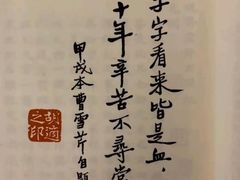 字字看来皆是血，
十年辛苦不尋常
甲戌本曹雪芹自題
胡適
之印